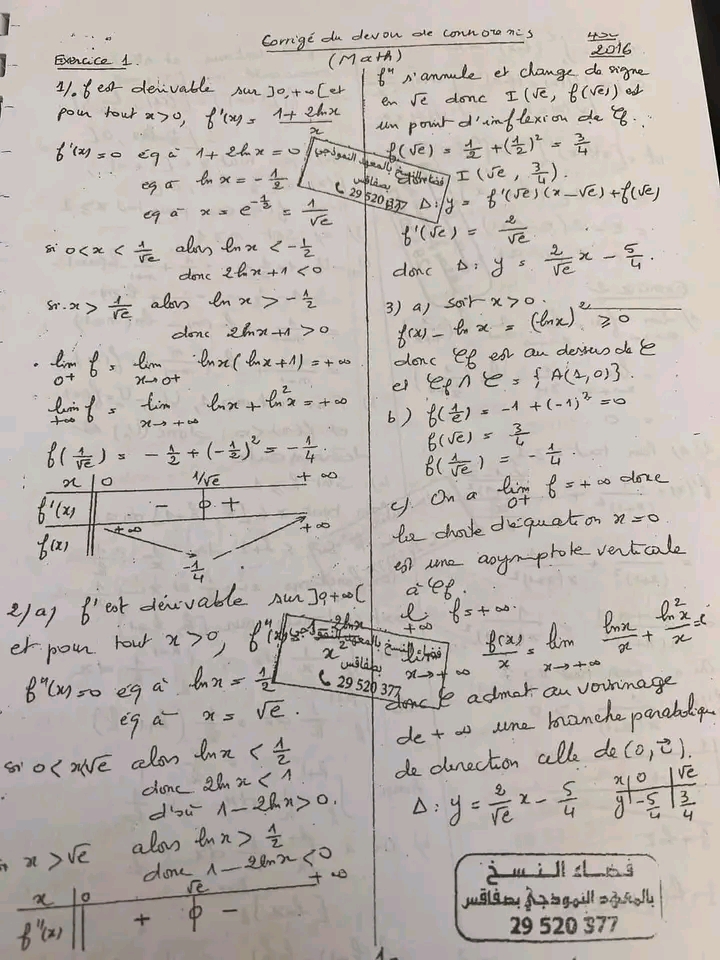 Corrigé du devoir de
(Math)
2016
Exercice 1.
1/. f est dérivable sur ]0,+∞[ et
pour tout x>0, f'(x) = (1+2lnx)/x
f'(x)=0 éq à 1+2lnx=0
eq à ln x = -1/2
eq à x = e^(-1/2) = 1/√e
si 0<x<1/√e alors lnx < -1/2
donc 2lnx+1 <0
si x > 1/√e alors ln x > -1/2
donc 2lnx+1 >0
. lim_{0+} f = lim_{x→0+} lnx(lnx+1) = +∞
lim_{+∞} f = lim_{x→+∞} lnx + ln²x = +∞
f(1/√e) = -1/2 + (-1/2)² = -1/4
x 0 1/√e +∞
f'(x) - 0 +
f(x) +∞ -1/4 +∞
2/ a) f' est dérivable sur ]0,+∞[
et pour tout x>0, f"(x) = 2lnx x²
f"(x)=0 éq à lnx = 1/2
éq à x = √e.
si 0<x<√e alors lnx < 1/2
donc 2lnx < 1
d'où 1-2lnx>0.
x >√e alors lnx > 1/2
donc 1-2lnx <0
x 0 √e +∞
f"(x) + 0 -
f" s'annule et change de signe
en √e donc I(√e, f(√e)) est
un point d'inflexion de 𝒞f.
f(√e) = 1/2 + (1/2)² = 3/4
I(√e, 3/4).
Δ: y = f'(√e)(x-√e)+f(√e)
f'(√e) = 2/√e
donc Δ: y = 2/√e x - 5/4.
3) a) soit x>0.
f(x) - ln x = (lnx)² ≥ 0
donc 𝒞f est au dessus de 𝒞
et 𝒞f ∩ 𝒞 = {A(1,0)}.
b) f(1/e) = -1+(-1)² = 0
f(√e) = 3/4
f(1/√e) = -1/4.
c) On a lim_{0+} f = +∞ donc
la droite d'équation x=0
est une asymptote verticale
à 𝒞f.
lim_{+∞} f = +∞.
x→+∞ f(x)/x = lim_{x→+∞} lnx/x + ln²x/x =
donc 𝒞 admet au voisinage
de +∞ une branche parabolique
de direction celle de (0,i⃗).
Δ: y = 2/√e x - 5/4
x 0 √e
y -5/4 3/4
فضاء النسخ بالمعهد النموذجي
بصفاقس
29 520 377
فضاء النسخ بالمعهد النموذجي
بصفاقس
29 520 377
فضاء النسخ
بالمعهد النموذجي بصفاقس
29 520 377